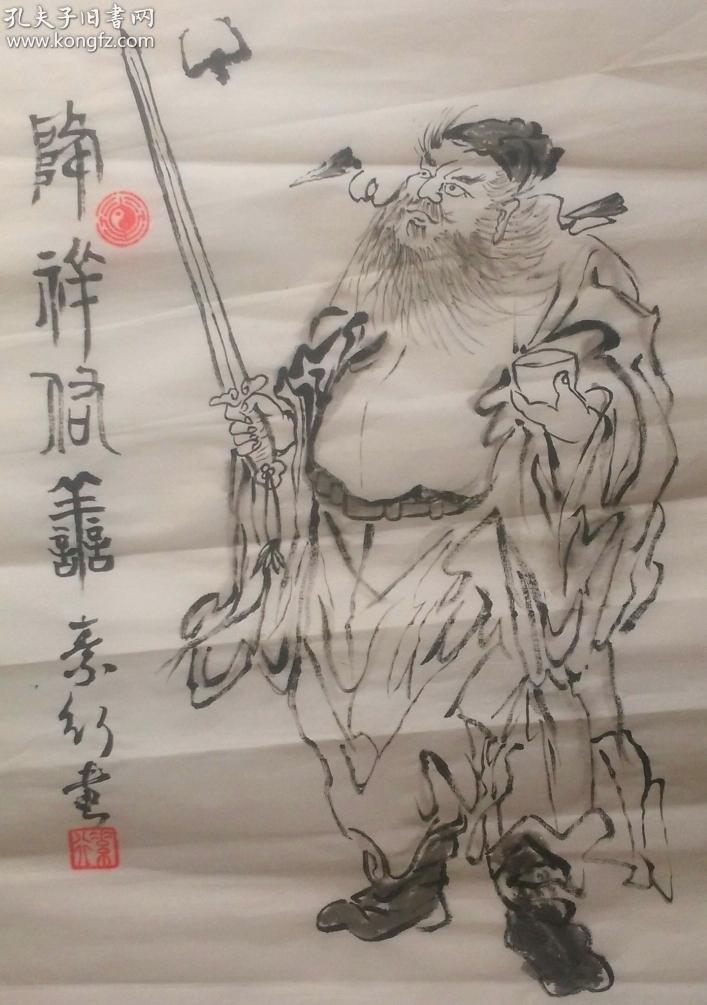 孔夫子旧书网
www.kongfz.com
降祥佑譱
素行畫